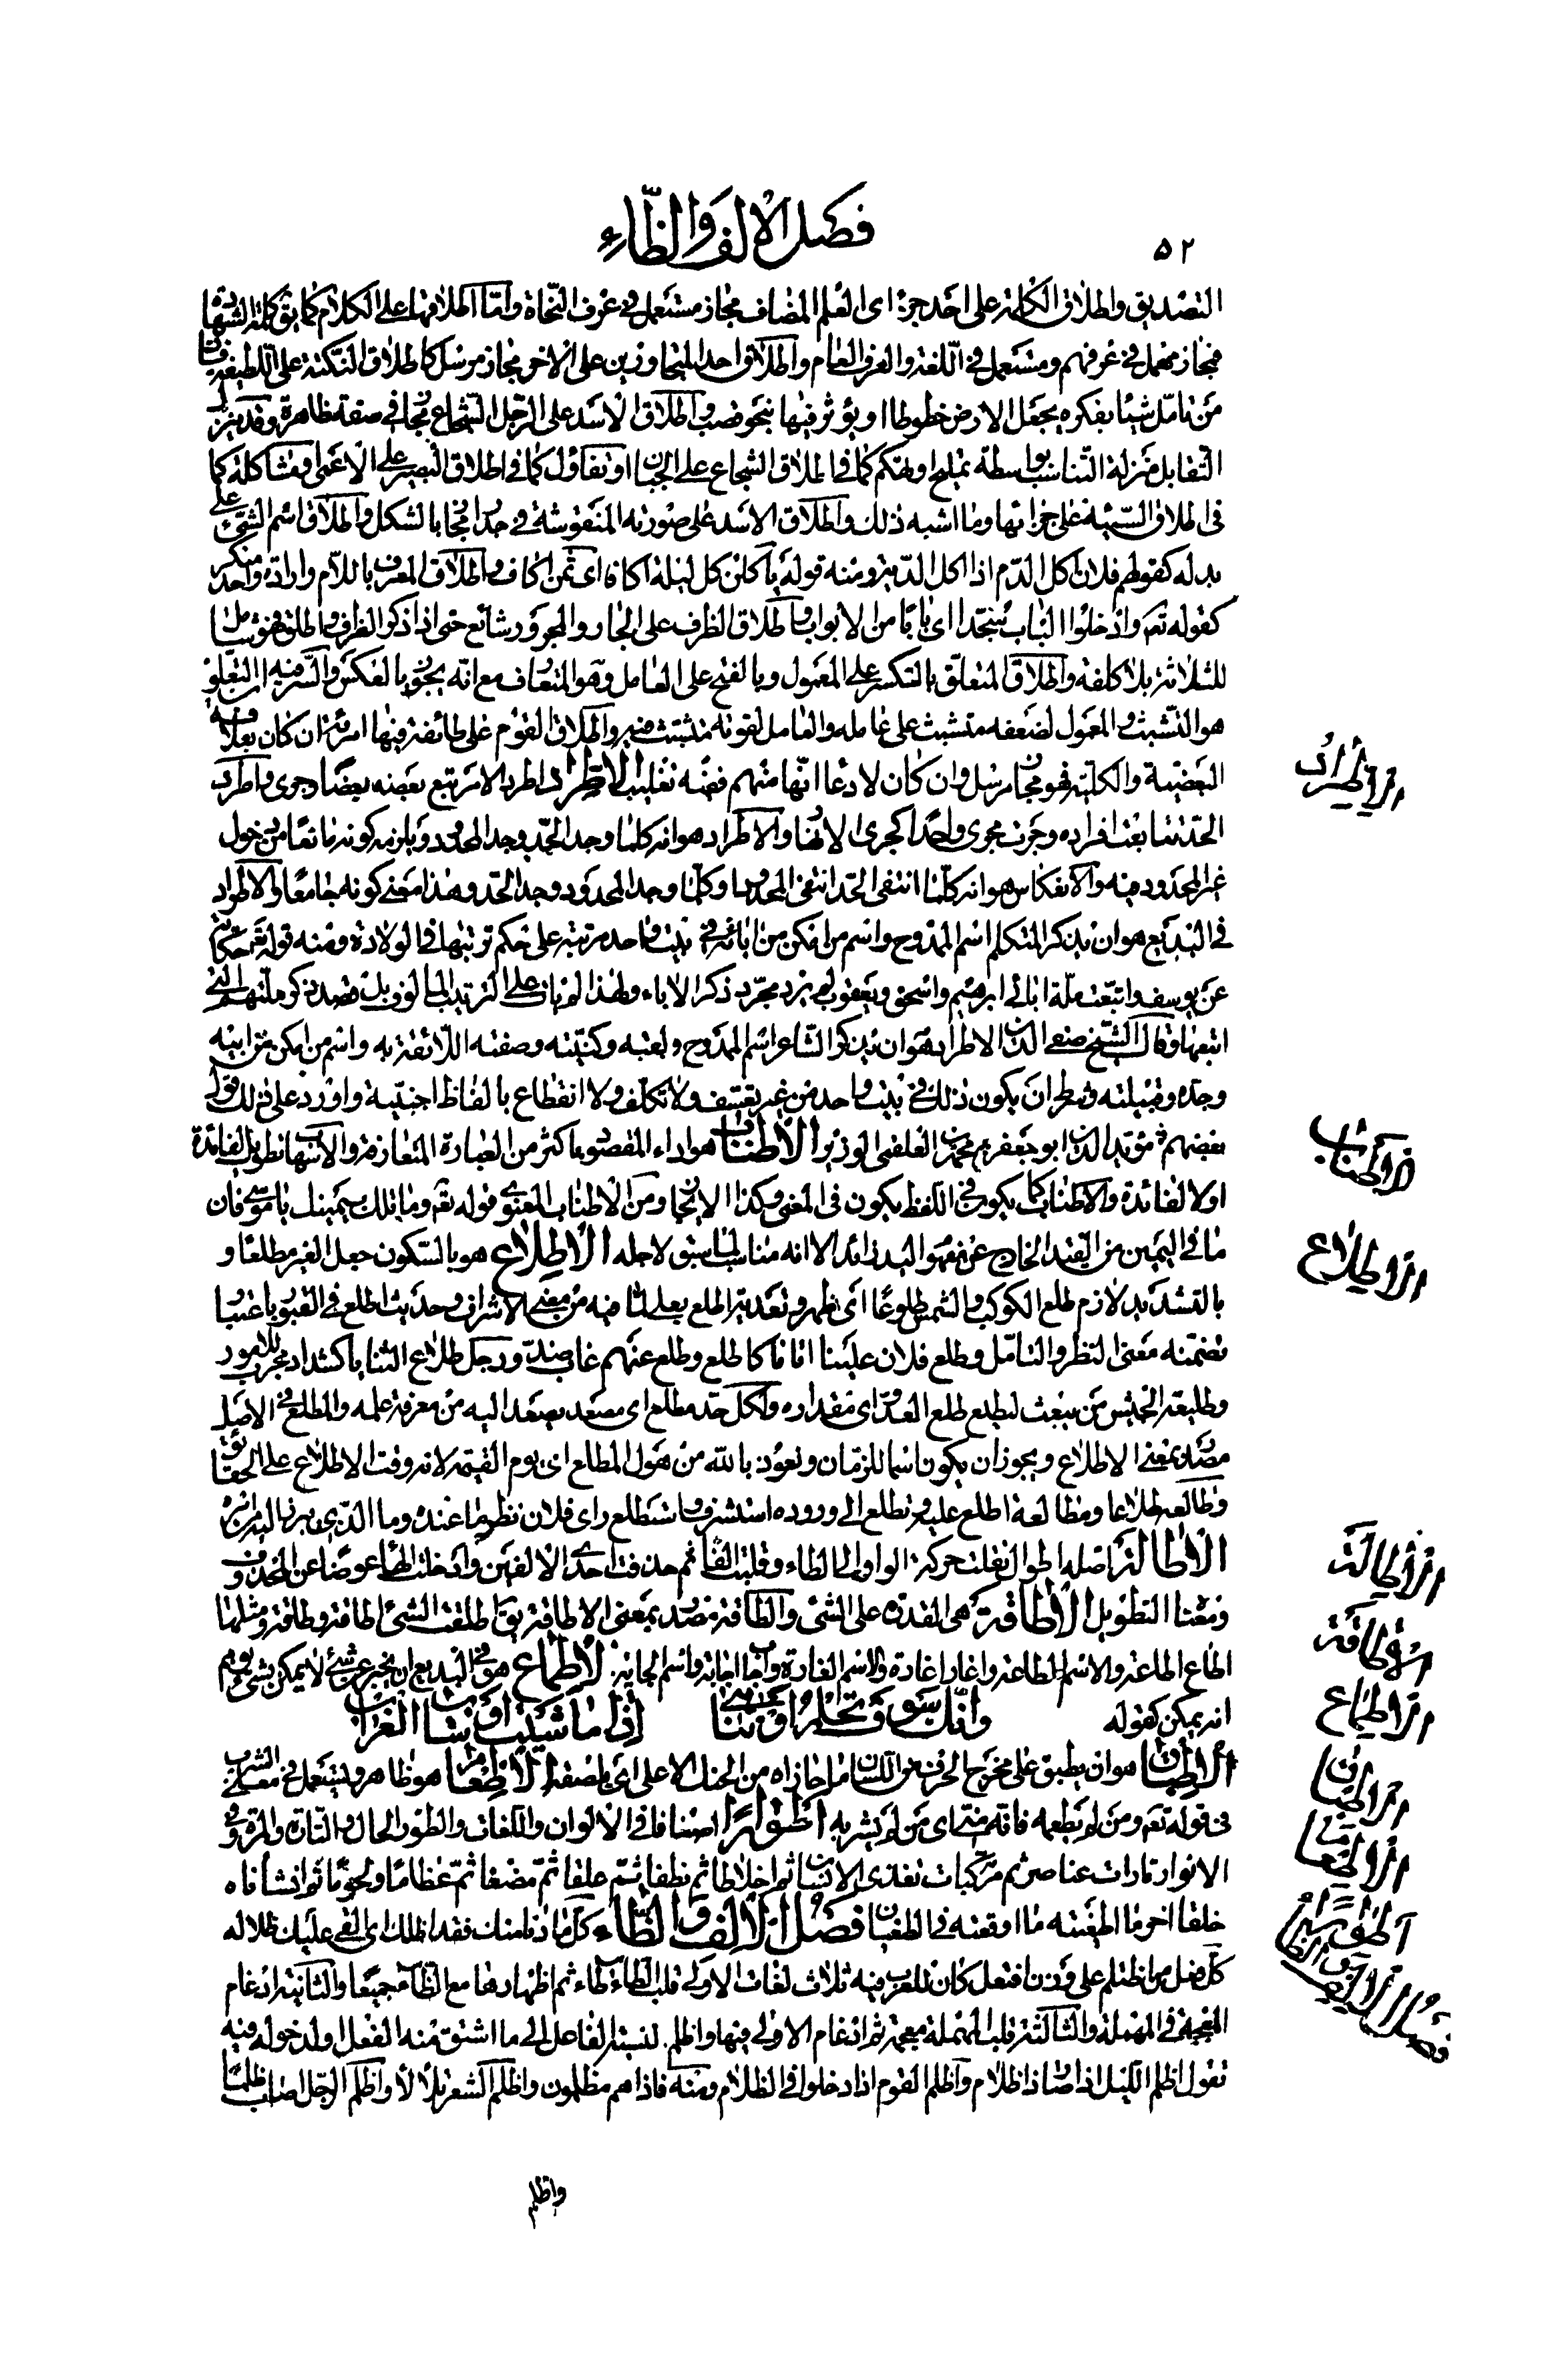 ٥٢
فصل الالف والظاء
التصديق واطلاق الكلمة على احد جزئى العلم المضاف مجاز مستعمل فى عرف النحاة وامّا اطلاقها على الكلام كما يق كلمة الشهادة
فمجاز مهمل فى عرفهم ومستعمل فى اللغة والعرف العام واطلاق احد المتجاوزين على الاخر مجاز مرسل كاطلاق النكتة على اللطيفة فان
من تامّل شيئا بفكره يجعل الارض خطوطا او يؤثر فيها بنحو قصب واطلاق الاسد على الرّجل الشّجاع مجاز فى صفة ظاهرة وقد ينزل
التّقابل منزلة التّناسب بواسطة تمليح او تهكم كما فى اطلاق الشجاع على الجبان او تفاؤل كما فى اطلاق البصير على الاعمى او مشاكلة كما
فى اطلاق السّيّئة على جزائها وما اشبه ذلك واطلاق الاسد على صورته المنقوشة فى جدار مجاز بالشكل واطلاق اسم الشئ على
بدله كقولهم فلان اكل الدّم اذا اكل الدّية ومنه قوله ياكلن كل ليلة اكافا اى ثمن اكاف واطلاق المعرف باللّام وارادة واحد منكر
كقوله تعم وادخلوا الباب سجّدا اى بابا من الابواب واطلاق الظرف على الجار والمجرور شائع حتى اذا ذكر الظرف واطلق فهو شامل
للثلاثة بلا كلفة واطلاق المتعلّق بالكسر على المعمول وبالفتح على العامل وهو المتعارف مع انّه يجوز بالعكس والسّر فيه ان التعلّق
هو التّشبث والمعمول لضعفه متشبث على عامله والعامل لقوته متشبث فيه واطلاق القوم على طائفة فيها امرئة ان كان بعلاقة
البعضيّة والكليّة فهو مجاز مرسل وان كان لادعاء انّها منهم ففيه تغليب الاطراد اطرد الامر تبع بعضه بعضا وجرى واطرد
الحدّ تتابعت افراده وجرت مجرى واحدا كجرى الانهار والاطراد هو انه كلما وجد الحدّ وجد المحدود ويلزمه كونه مانعا من دخول
غير المحدود فيه والانعكاس هو انه كلّما انتفى الحدّ انتفى المحدود او كلّما وجد المحدود وجد الحدّ وهذا معنى كونه جامعا والاطراد
فى البديع هو ان يذكر المتكلم اسم الممدوح واسم من امكن من ابائه فى بيت واحد مرتبة على حكم ترتيبها فى الولادة ومنه قوله تعم حكاية
عن يوسف واتبعت ملّة ابائى ابرهيم واسحق ويعقوب لم يرد مجرّد ذكر الاباء ولهذا لم يات على الترتيب المالوف بل قصد ذكر ملتهم التى
اتبعها وقال الشّيخ صفى الدّين الاطراد هو ان يذكر الشّاعر اسم الممدوح ولقبه وكنيته وصفته اللّائقة به واسم من امكن من ابيه
وجدّه وقبيلته وشرط ان يكون ذلك فى بيت واحد من غير تعسّف ولا تكلّف ولا انقطاع بالفاظ اجنبيّة واورد على ذلك قول
بعضهم مؤيد الدّين ابو جعفر محمد بن العلقمى الوزير الاطناب هو اداء المقصود باكثر من العبارة المتعارفة والاسهاب تطويل لفائدة
او لا لفائدة والاطناب كما يكون فى اللفظ يكون فى المعنى وكذا الايجاز ومن الاطناب المعنوى قوله تعم وما تلك بيمينك يا موسى فان
ما فى اليمين من القيد الخارج عن مفهوم اليد زائد الا انه مناسب لما سبق لاجله الاطلاع هو بالسّكون جعل الغير مطلعا و
بالتشديد لازم طلع الكوكب والشمس طلوعا اى ظهر وتعدية اطلع بعلى لما فيه من معنى الاشراف وحديث اطلع فى القبور باعتبار
تضمنه معنى النظر والتامّل وطلع فلان علينا اتانا كاطلع وطلع عنهم غاب ضدّ ورجل طلاع الثنايا كشداد مجرب للامور
وطليعة الجيش من يبعث ليطلع طلع العدوّ اى مقداره ولكل حدّ مطلع اى مصعد يصعد اليه من معرفة علمه والمطلع فى الاصل
مصدر بمعنى الاطلاع ويجوز ان يكون اسما للزمان ونعوذ بالله من هول المطلع اى يوم القيمة لانه وقت الاطلاع على الحقائق
وطالعه طلاعا ومطالعة اطلع عليه وتطلع الى وروده استشرف واستطلع راى فلان نظر ما عنده وما الذى يبرز اليه من امره
الاطالة اصله اطوال نقلت حركة الواو الى الطاء وقلبت الفا ثم حذفت احدى الالفين وادخلت الهاء عوضا عن المحذوف
ومعناه التطويل الاطاقة هى القدرة على الشئ والطاقة مصدر بمعنى الاطاقة يق اطقت الشئ اطاقة وطاقة ومثلها
اطاع اطاعة والاسم الطاعة واغار اغارة والاسم الغارة واجاب اجابة واسم الجابة الاطماع هو فى البديع ان يخبر عن شئ لا يمكن بشئ يوهم
انه يمكن كقوله وانّك سوف تحلم او تناهى اذا ما شبت او شاب الغراب
الاطباق هو ان يطبق على مخرج الحرف من اللسان ما حاذاه من الحنك الاعلى اى يلصقه الاطعام هو ظاهر ويستعمل فى معنى الشرب
فى قوله تعم ومن لم يطعمه فانّه منّى اى من لم يشربه اطوارا اصنافا فى الالوان واللغات والطّور الحال والتارة والمرة وفى
الانوار تارات عناصر ثم مركبات تغذى الانسان ثم اخلاطا ثم نطفا ثمّ علقا ثمّ مضغا ثمّ عظاما ولحوما ثم انشاناه
خلقا اخر ما اطغيته ما اوقعته فى الطغيان فصل الالف والظاء كل ما دنا منك فقد اظلك اى القى عليك ظلاله
كل فعل من اظتلم على وزن افتعل كان للعرب فيه ثلاث لغات الاولى قلب التاء طاء ثم اظهارها مع الظاء جميعا والثانية ادغام
المعجمة فى المهملة والثالثة قلب المهملة معجمة ثم ادغام الاولى فيها واظلم لنسبة الفاعل الى ما اشتق منه الفعل او لدخوله فيه
تقول اظلم الليل اذا صار ذا ظلام واظلم القوم اذا دخلوا فى الظلام ومنه فاذا هم مظلمون واظلم الشعر تلألأ واظلم الرّجل اصاب ظلما
واظلم
الاطراد
الاطناب
الاطلاع
الاطالة
الاطاقة
الاطماع
الاطباق
الاطعام
اطوارا
فصل الالف والظاء